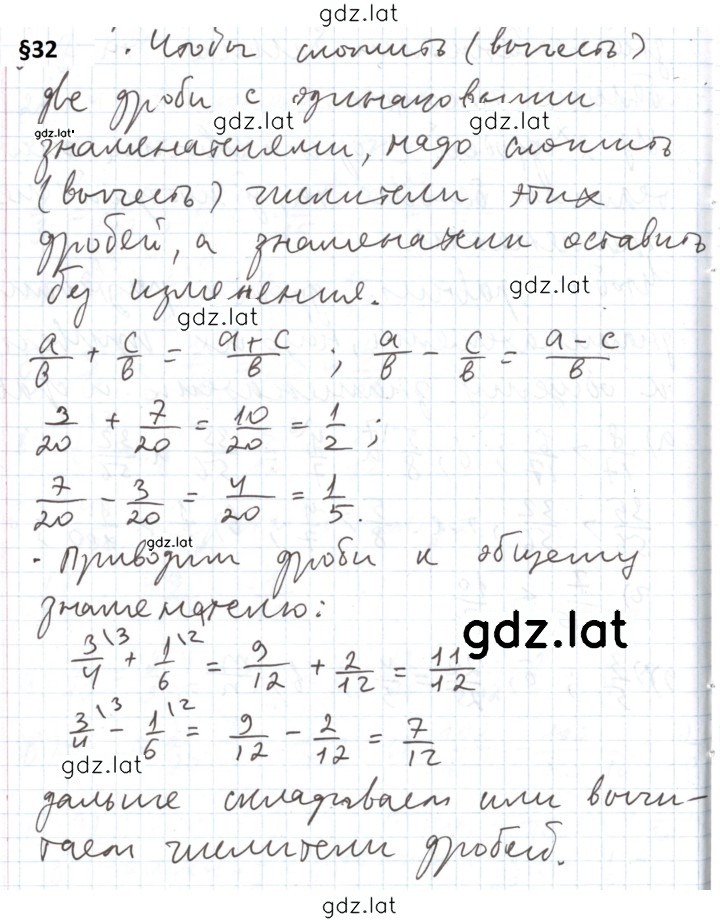 gdz.lat
§32 Чтобы сложить (вычесть)
две дроби с одинаковыми
gdz.lat
gdz.lat
знаменателями, надо сложить
(вычесть) числители этих
дробей, а знаменатели оставить
без изменения.
gdz.lat
gdz.lat
a/в + c/в = a+c/в ; a/в - c/в = a-c/в
3/20 + 7/20 = 10/20 = 1/2 ;
7/20 - 3/20 = 4/20 = 1/5.
gdz.lat
- Приводим дроби к общему
знаменателю:
gdz.lat
3/4\3 + 1/6\2 = 9/12 + 2/12 = 11/12
3/4\3 - 1/6\2 = 9/12 - 2/12 = 7/12
gdz.lat
дальше складываем или вычи-
таем числители дробей.
gdz.lat